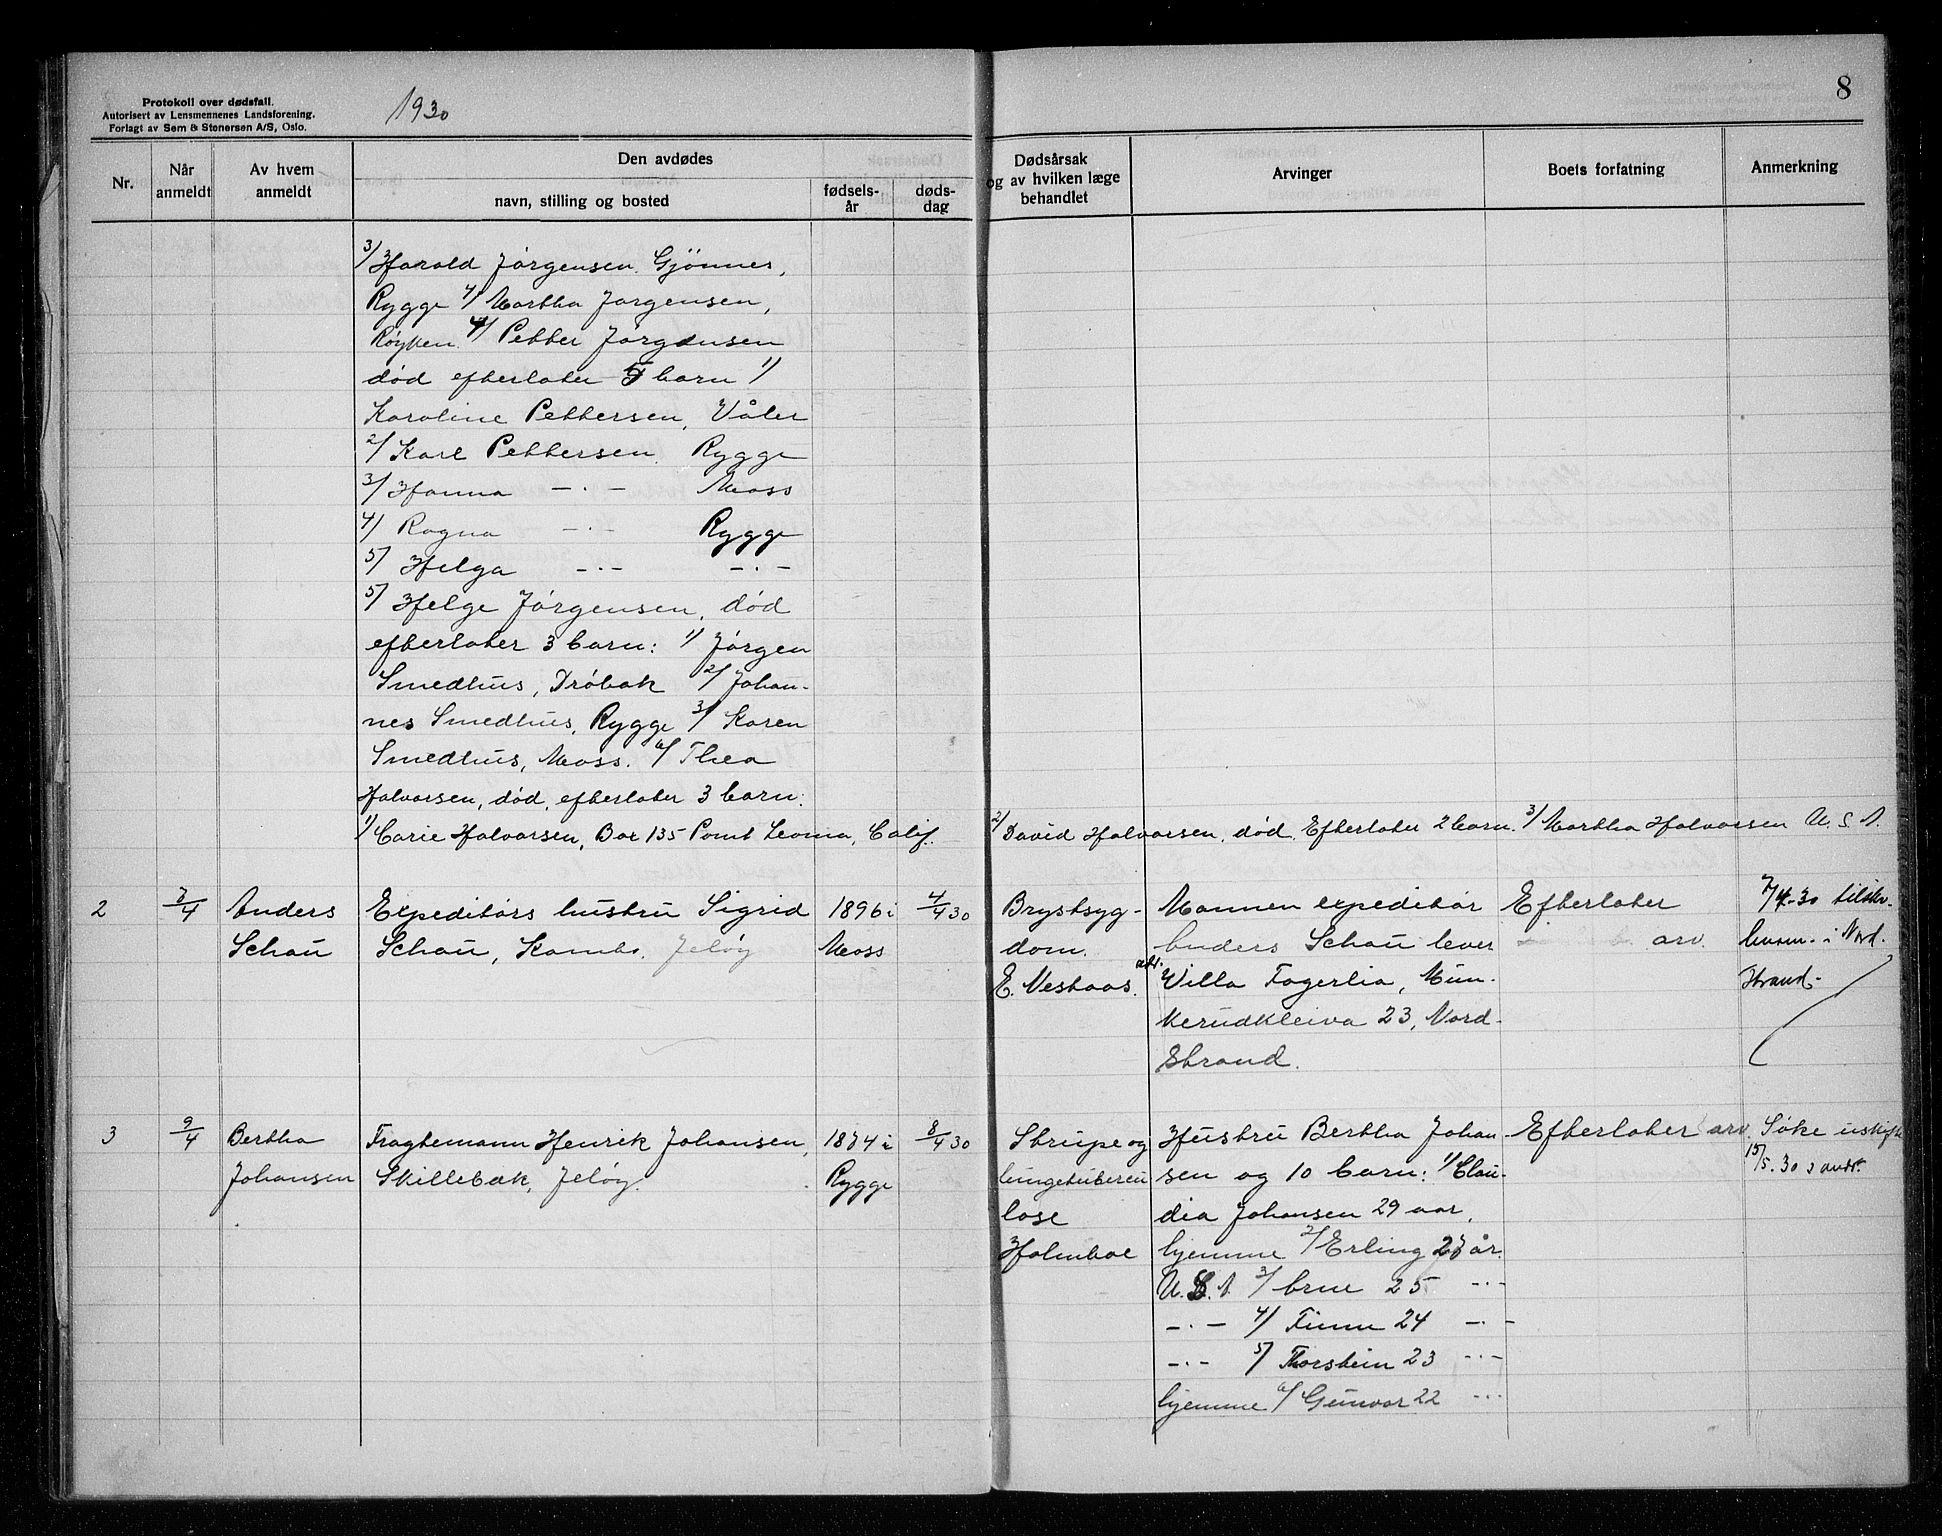 Protokoll over dødsfall.
Autorisert av Lensmennenes Landsforening.
Forlagt av Sem & Stenersen A/S, Oslo.
1930
8
Nr.
Når anmeldt
Av hvem anmeldt
Den avdødes
navn, stilling og bosted
fødsels-år
døds-dag
Dødsårsak og av hvilken læge behandlet
Arvinger
Boets forfatning
Anmerkning
3/ Harald Jørgensen, Gjønnes,
Rygge 4/ Martha Jørgensen,
Røyken. 4/ Petter Jørgensen
død efterlater 5 barn 1/
Karoline Pettersen, Våler
2/ Karl Pettersen, Rygge
3/ Hanna -·- Moss
4/ Ragna -·- Rygge
5/ Helga -·- -·-
5/ Helge Jørgensen, død
efterlater 3 barn: 1/ Jørgen
Smedhus, Drøbak 2/ Johan-
nes Smedhus, Rygge 3/ Karen
Smedhus, Moss. 6/ Thea
Halvorsen, død, efterlater 3 barn:
1/ Carie Halvorsen, Box 135 Point Leoma, Calif. 2/ David Halvorsen, død. Efterlater 2 barn. 3/ Martha Halvorsen U.S.A.
2
7/4
Anders
Schau
Expeditørs hustru Sigrid
Schau, Kambo, Jeløy
1896 i
Moss
4/4 30
Brystsyg-
dom.
E. Neshaas.
Mannen expeditør
Anders Schau lever
adr. Villa Fagerlia, Mun-
kerudkleiva 23, Nord-
strand.
Efterlater
arv.
7/4-30 tilskr.
lensm. i Nord-
strand.
3
9/4
Bertha
Johansen
Fragtemann Henrik Johansen,
Skillebæk, Jeløy.
1874 i
Rygge
8/4 30
Strupe og
lungetuberku
lose
Holmboe
Hustru Bertha Johan-
sen og 10 barn: 1/ Clau-
dia Johansen 29 aar,
hjemme 2/ Erling 27 år.
U.S.A. 3/ Arne 25 -·-
-·- 4/ Finn 24 -·-
-·- 5/ Thorstein 23 -·-
hjemme 6/ Gunvor 22 -·-
Efterlater arv.
Søke uskifte
15/5.30 s.andr.